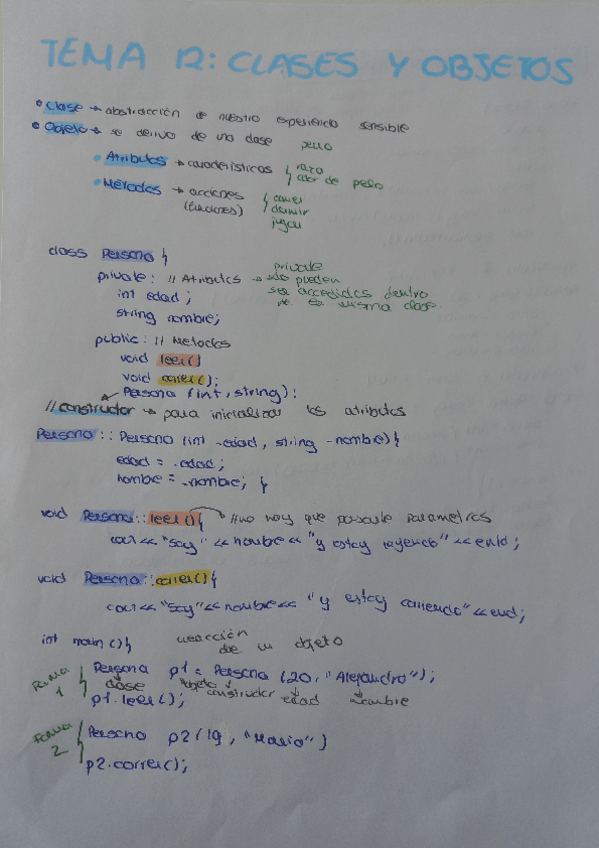 TEMA 12: CLASES Y OBJETOS
• Clase → abstracción de nuestra experiencia sensible
• Objeto → se deriva de una clase perro
• Atributos → características { raza
color de pelo
• Métodos → acciones { comer
(funciones) dormir
jugar
class Persona {
private: // Atributos → private
solo pueden
int edad;
ser accedidos dentro
string nombre;
de la misma clase.
public: // Metodos
void leer()
void correr();
Persona (int, string);
// constructor → para inicializar los atributos
Persona :: Persona (int _edad, string _nombre) {
edad = _edad;
nombre = _nombre; }
void Persona::leer() { // no hay que pasarle parametros
cout << "Soy" << nombre << "y estoy leyendo" << endl;
void Persona::correr() {
cout << "Soy" << nombre << "y estoy corriendo" << endl;
int main () { creación de un objeto
Forma 1 { Persona p1 = Persona (20, "Alejandro");
clase objeto constructor edad nombre
p1.leer();
Forma 2 { Persona p2 (19, "Maria")
p2.correr();